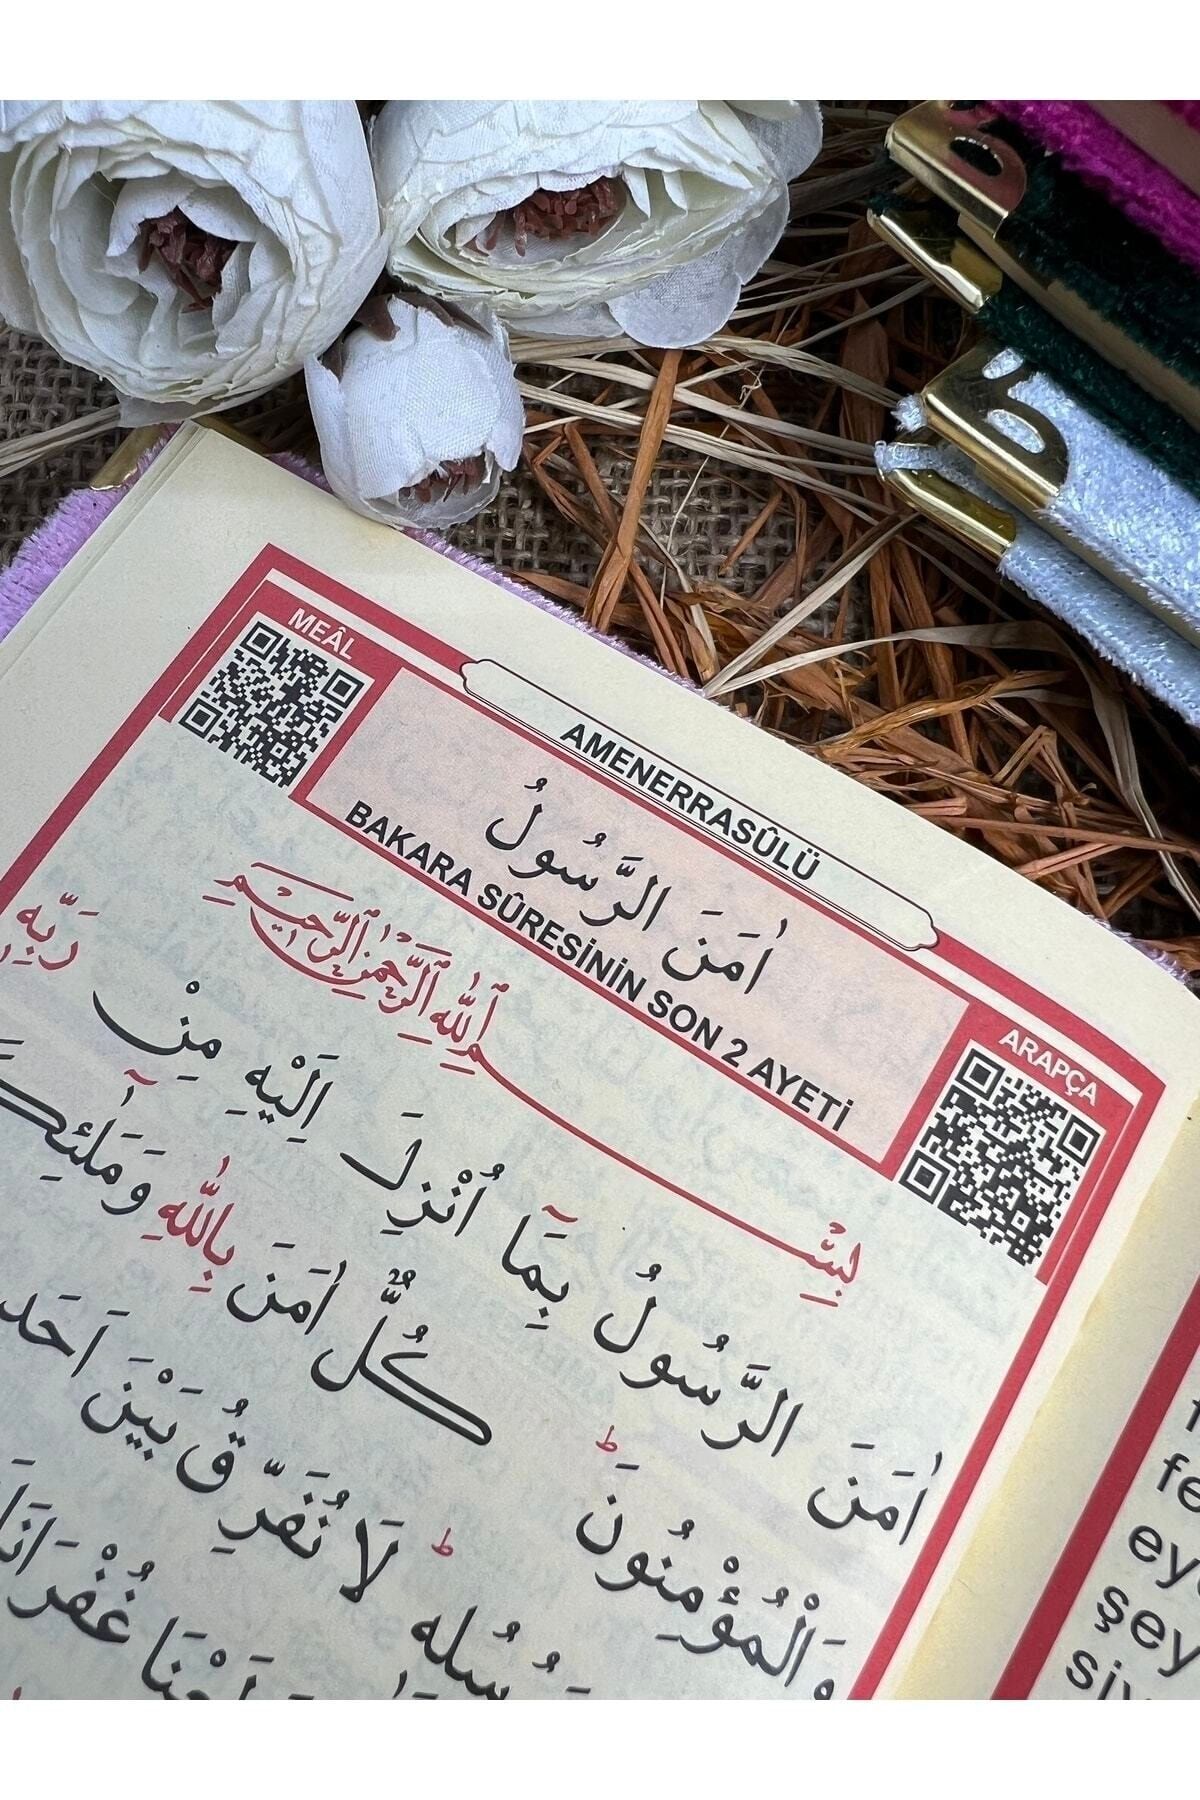 MEÂL
AMENERRASÛLÜ
اٰمَنَ الرَّسُولُ
BAKARA SÛRESİNİN SON 2 AYETİ
ARAPÇA
بِسْمِ اللّٰهِ الرَّحْمٰنِ الرَّحٖيمِ
اٰمَنَ الرَّسُولُ بِمَٓا اُنْزِلَ اِلَيْهِ مِنْ رَبِّهٖ
وَالْمُؤْمِنُونَؕ كُلٌّ اٰمَنَ بِاللّٰهِ
رُسُلِهٖؕ لَا نُفَرِّقُ بَيْنَ اَحَدٍ
غُفْرَانَكَ